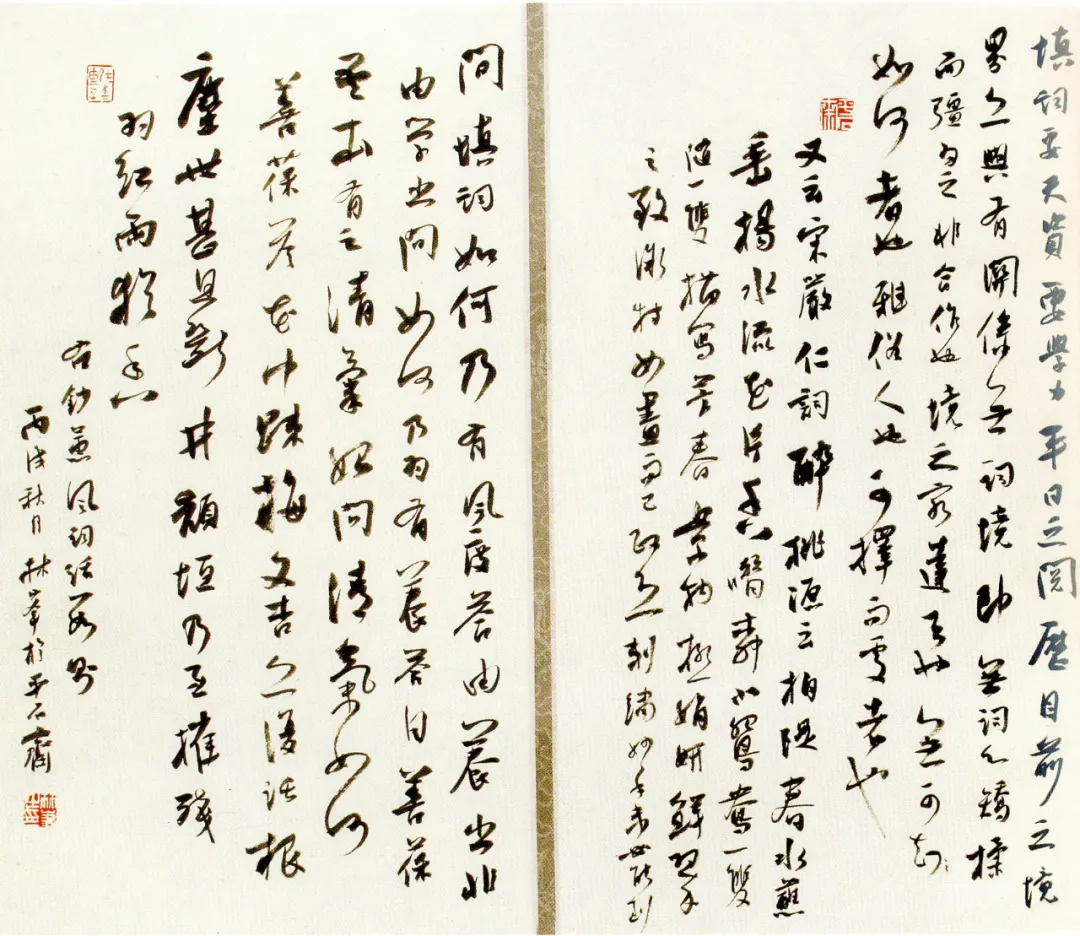 填詞要天資要學力平日之閱歷目前之境
界亦與有關係無詞境即無詞心矯揉
而彊為之非合作也境之窮達天也無可
如何者也雅俗人也可擇而處者也
又云宋嚴仁詞醉桃源云拍隄春水蘸
垂楊水流花片香噆弄小鴛鴦一雙
隨一雙描寫芳春景物極娟妍鮮翠
之致微特如畫而已政恐刺繡妙手未必能到
問填詞如何乃有風度答由養出非
由學出問如何乃為有養答曰善葆
吾本有之清氣始問清氣如何
善葆答花中疎梅文杏亦復託根
塵世甚且斷井頹垣乃至摧殘
為紅雨猶香
右鈔蕙風詞話兩則
丙戌秋月林峯於平石齋